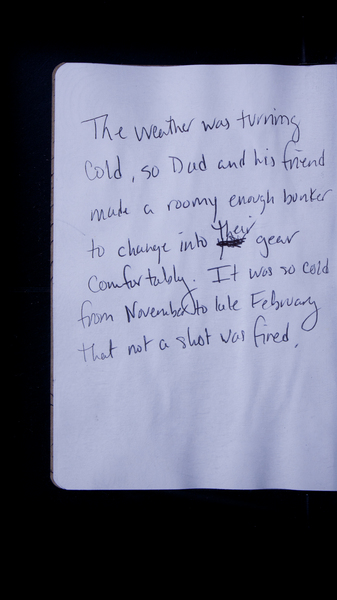 The weather was turning
cold, so Dad and his friend
made a roomy enough bunker
to change into their gear
comfortably. It was so cold
from November to late February
that not a shot was fired.